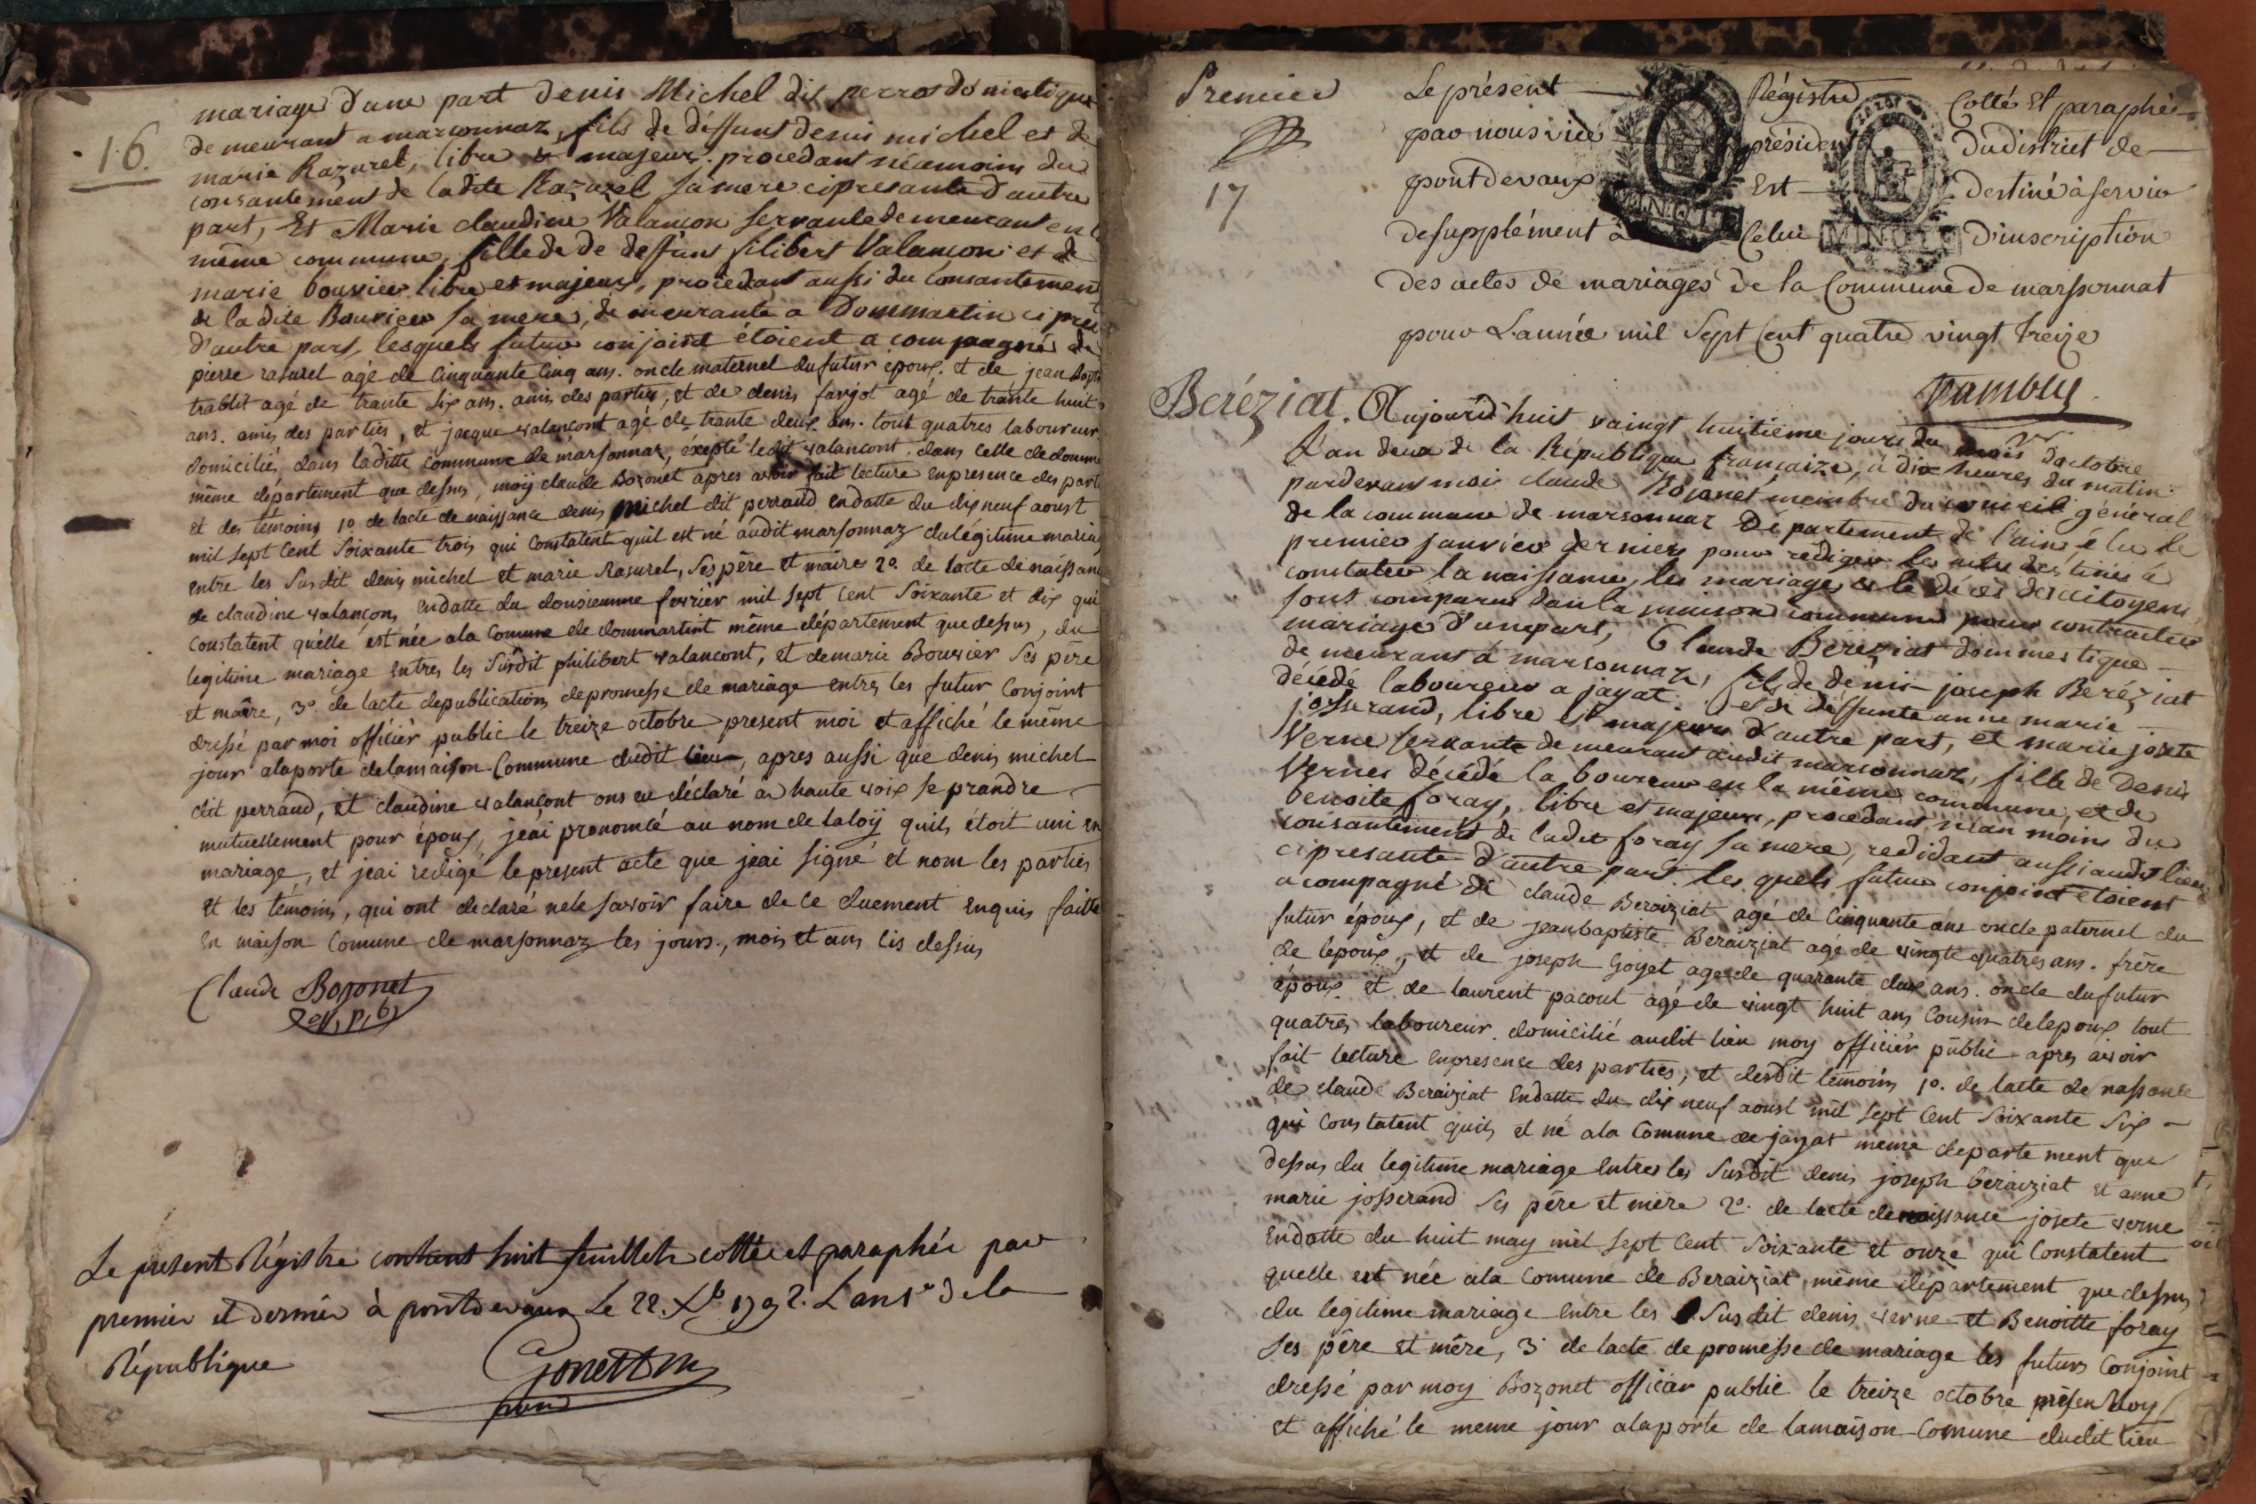 16.
mariage d'une part denis Michel dit perrod domestique
demeurant a marsonnaz, fils de déffunt denis michel et de
marie Razurel, libre et majeur. procedant néamoins du
consantement de ladite Razurel sa mere cipresante d'autre
part, Et Marie claudine Valançon servante demeurant en
même commune, fille de de deffunt filibert Valançon et de
marie bouvier libre et majeur, procedant aussi du consantement
de ladite Bouvier sa mere, demeurante a Dommartin
d'autre part, lesquels futur conjoint étoient acompagné de
pierre rasurel agé de Cinquante Cinq ans. oncle maternel du futur époux. et de jean
trablit agé de trante six ans. amis des parties, et de denis farjot agé de trante huit
ans. amis des parties, et jacque valançont agé de trante deux ans. tout quatres laboureur
domicilié, dans laditte commune de marsonnaz, éxepté ledit valançont. dans celle de
même département que dessus, moy claude Bozonet apres avoir fait lecture enpresence des
et des temoins 1o. de lacte de naissance denis Michel dit perraud endatte du dix neuf aoust
mil sept Cent soixante trois qui Constatent quil est né audit marsonnaz du légitime
entre les susdit denis michel et marie Rasurel, ses père et maire 2o. de lacte de
de claudine valançon, endatte du dousiemme fevrier mil sept Cent Soixante et dix qui
Constatent quélle est née ala Comune de dommartint même département que dessus, du
legitime mariage entres les Susdit philibert valancont, et de marie Bouvier ses père
et maire, 3o. de lacte depublications depromesse de mariage entres les futur Conjoint
dressé par moi officiér public le treize octobre present moi et affiché le même
jour alaporte delamaison Commune dudit lieu, apres aussi que denis michel
dit perraud, et claudine valançont ons eu déclaré a haute voix se prandre
mutuellement pour époux, jeai pronomcé au nom de laloÿ quils étoit uni en
mariage, et jeai redigé le present acte que jeai signé et nom les parties
et les témoins, qui ont declaré nele savoir faire de ce duement enquis faitte
en maison Comune de marsonnaz les jours., mois et ans dis dessus
Claude Bozonet
Le present Régistre contenant huit feuillets cotté et paraphée par
premier et dernier à pontdevaux Le 22. Xb. 1792. L'an 1er dela
République
Premier
17
Le présent Régistre Cotté Et paraphé
par nous vice président Du district de
pontdevaux Est destiné à servir
desupplément à Celui D'inscription
des actes de mariages de la Commune de marsonnat
pour L'année mil Sept Cent quatre vingt treize
MINUTE
MINUTE
Beréziat. Aujourd'huit vaingt huitième jour du mois doctobre
L'an deux de la République françaize, à dix heures du matin
pardevant moi claude Bozonet membre du conseil général
de la commune de marsonnaz Département de l'ain élu le
premier janvier dernier pour rediger les actes destinés à
constater la naissance, les mariages et le décés des citoyens,
sont comparus dans la maison commune pour contracter
mariage d'unepart, Claude Béréziat dommestique
demeurant à marsonnaz, fils de denis joseph Beréziat
décédé laboureur a jayat. et de déffunte anne marie
josserand, libre et majeur d'autre part, et marie josete
Verne servante demeurant audit marsonnaz, fille de Denis
Vernes décédé laboureur en la même commune, et de
benoite foray, libre et majeure, procedant néan moins du
consantement de ladite foray sa mere, redidant aussi audit lieu
cipresante d'autre part. les quels futur conjoint étoient
acompagné de claude Beraiziat agé de Cinquante ans oncle paternel du
futur époux, et de jeanbaptiste Beraiziat agé de vingte quatres ans. frère
de lepoux, et de joseph Goyet, agé de quarante deux ans. oncle du futur
époux. et de laurent pacout agé de vingt huit ans Cousin delepoux tout
quatres laboureur. domicilié audit lieu moy officiér public apres avoir
fait lecture enpresence des parties, et desdit témoins 1o. de lacte de nassance
de claude Beraiziat Endatte du dix neuf aoust mil sept Cent soixante Six
qui Constatent quils et né ala Comune de jayat meme departement que
dessus du legitime mariage Entres les Susdit denis joseph beraiziat et anne
marie josserand ses père et mère 2o. de lacte denaissance josete verne
Endatte du huit may mil sept Cent Soixante et onze qui Constatent
quelle est née ala Comune de Beraiziat même département que dessus
du legitime mariage entre les Susdit denis verne et Benoitte foray
ses père et mère, 3o de lacte de promesse de mariage les futurs Conjoint
dressé par moy Bozonet officier public le treize octobre présen Moy
et affiché le meme jour alaporte de lamaison Comune dudit lieu